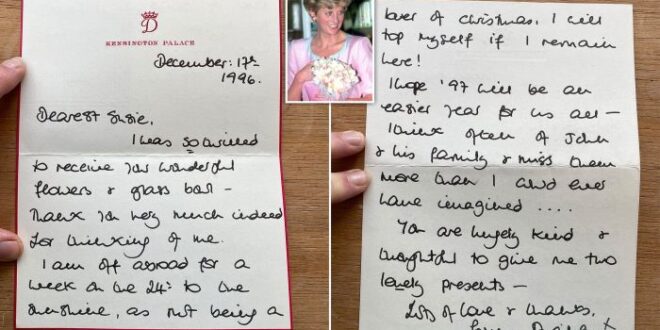 D
KENSINGTON PALACE
December: 17th
1996.
Dearest Susie,
I was so thrilled
to receive your wonderful
flowers & glass ball –
Thank you very much indeed
for thinking of me.
I am off abroad for a
week on the 24th to the
sunshine, as not being a
lover of Christmas, I will
top myself if I remain
here!
I hope '97 will be an
easier year for us all –
I think often of John
& his family & miss them
more than I could ever
have imagined ....
You are hugely kind &
thoughtful to give me two
lovely presents –
Lots of love & thanks,
Diana x